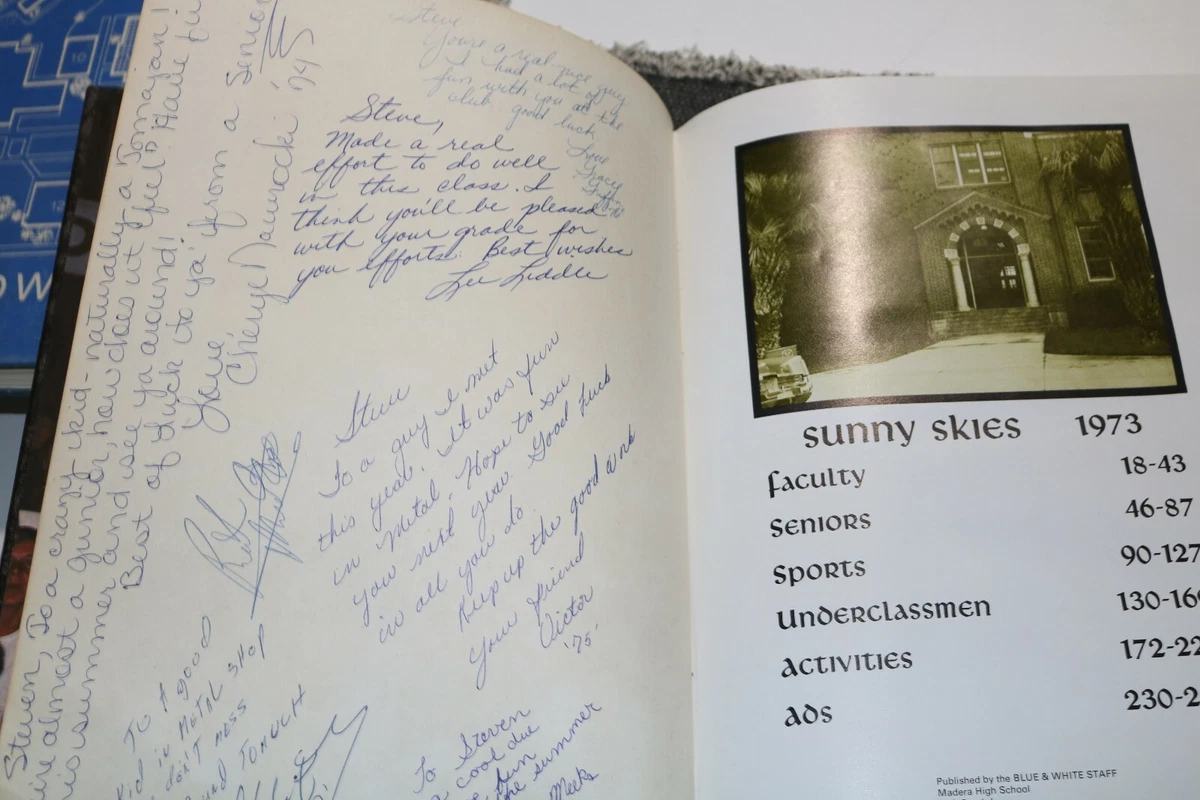 Steven, To a crazy kid - naturally a Tomajan!
almost a junior, how does it feel? Have fun
this summer and see ya around!
Best of luck to ya' from a Senior
Love
Cheryl '74
Steve
You're a real nice guy
I had a lot of
fun with you at the
club good luck
Love
Tracy
Steve,
Made a real
effort to do well
in this class. I
think you'll be pleased
with your grade for
you efforts. Best wishes
Lee Liddle
Steve
To a guy I met
this year. It was fun
in Metal. Hope to see
you next year. Good luck
in all you do.
Keep up the good work
Your friend
Victor
'75'
TO A GOOD
Kid in METAL SHOP
don't MESS
around TOMUCH
To Steven
a cool due
fun
the summer
Meeks
sunny skies 1973
faculty 18-43
seniors 46-87
sports 90-127
underclassmen 130-16
activities 172-22
ads 230-2
Published by the BLUE & WHITE STAFF
Madera High School
10
12
OW